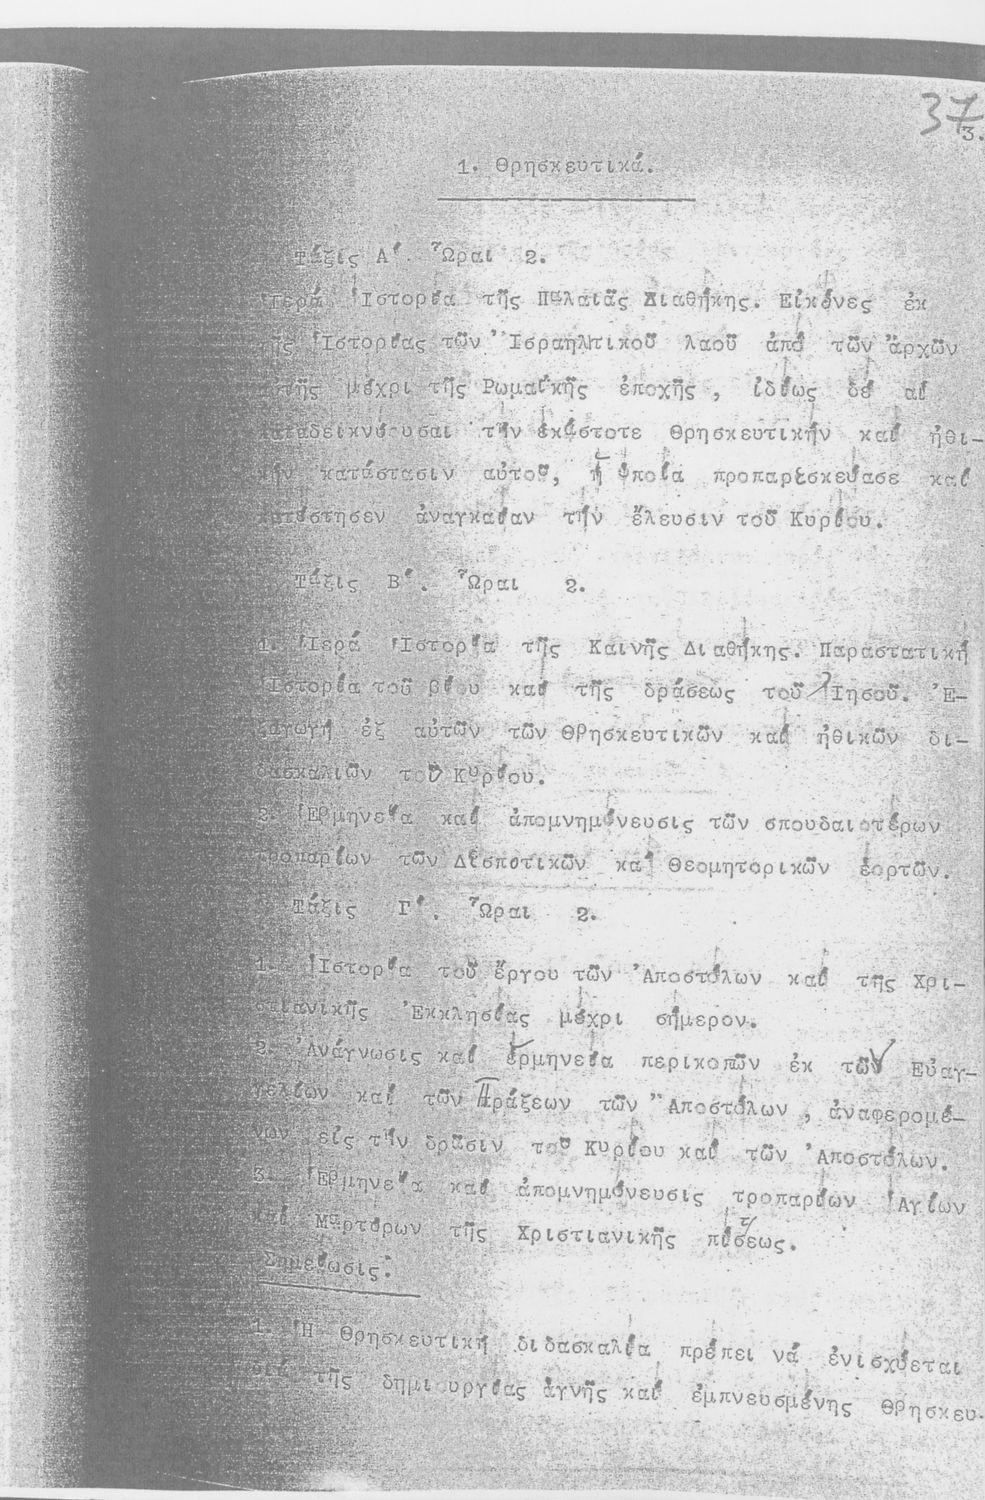 37
3.
1. Θρησκευτικά.
Τάξις Α΄. Ὧραι 2.
Ἱερά Ἱστορία τῆς Παλαιᾶς Διαθήκης. Εἰκόνες ἐκ
τῆς Ἱστορίας τῶν Ἰσραηλιτικοῦ λαοῦ ἀπό τῶν ἀρχῶν
μέχρι τῆς Ρωμαϊκῆς ἐποχῆς, ἰδίως δέ αἱ
καταδεικνύουσαι τήν ἑκάστοτε Θρησκευτικήν καί ἠθι-
κήν κατάστασιν αὐτοῦ, ἡ ὁποία προπαρεσκεύασε καί
κατέστησεν ἀναγκαίαν τήν ἔλευσιν τοῦ Κυρίου.
Τάξις Β΄. Ὧραι 2.
1. Ἱερά Ἱστορία τῆς Καινῆς Διαθήκης. Παραστατική
Ἱστορία τοῦ βίου καί τῆς δράσεως τοῦ Ἰησοῦ. Ἐ-
ξαγωγή ἐξ αὐτῶν τῶν Θρησκευτικῶν καί ἠθικῶν δι-
δασκαλιῶν τοῦ Κυρίου.
2. Ἑρμηνεία καί ἀπομνημόνευσις τῶν σπουδαιοτέρων
τροπαρίων τῶν Δεσποτικῶν καί Θεομητορικῶν ἑορτῶν.
Τάξις Γ΄. Ὧραι 2.
1. Ἱστορία τοῦ ἔργου τῶν Ἀποστόλων καί τῆς Χρι-
στιανικῆς Ἐκκλησίας μέχρι σήμερον.
2. Ἀνάγνωσις καί ἑρμηνεία περικοπῶν ἐκ τῶν Εὐαγ-
γελίων καί τῶν Πράξεων τῶν Ἀποστόλων, ἀναφερομέ-
νων εἰς τήν δρᾶσιν τοῦ Κυρίου καί τῶν Ἀποστόλων.
3. Ἑρμηνεία καί ἀπομνημόνευσις τροπαρίων Ἁγίων
καί Μαρτύρων τῆς Χριστιανικῆς πίστεως.
Σημείωσις:
1. Ἡ Θρησκευτική διδασκαλία πρέπει νά ἐνισχύεται
διά τῆς δημιουργίας ἁγνῆς καί ἐμπνευσμένης Θρησκευ-